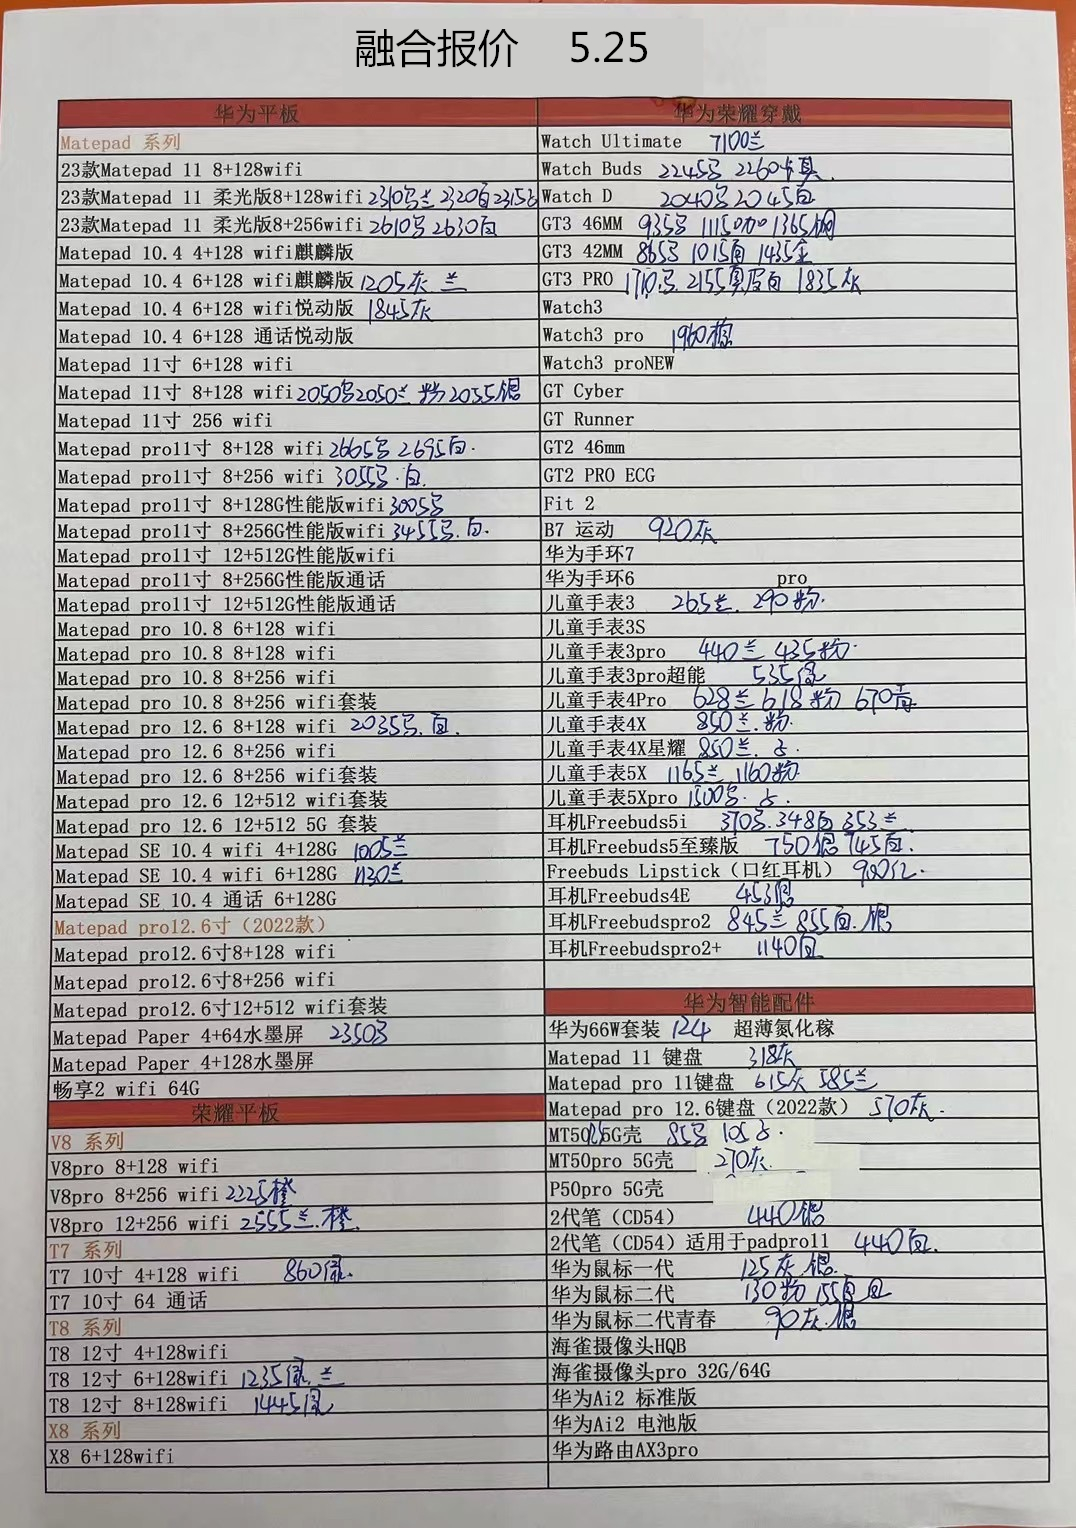 融合报价 5.25
华为平板
Matepad 系列
23款Matepad 11 8+128wifi
23款Matepad 11 柔光版8+128wifi 2310 兰 2320白 2315
23款Matepad 11 柔光版8+256wifi 2610 2630白
Matepad 10.4 4+128 wifi麒麟版
Matepad 10.4 6+128 wifi麒麟版 1205灰 兰
Matepad 10.4 6+128 wifi悦动版 1845灰
Matepad 10.4 6+128 通话悦动版
Matepad 11寸 6+128 wifi
Matepad 11寸 8+128 wifi 2050 2050兰 粉 2035银
Matepad 11寸 256 wifi
Matepad pro11寸 8+128 wifi 2665 2695白.
Matepad pro11寸 8+256 wifi 3055 .白.
Matepad pro11寸 8+128G性能版wifi 3005
Matepad pro11寸 8+256G性能版wifi 3455 .白.
Matepad pro11寸 12+512G性能版wifi
Matepad pro11寸 8+256G性能版通话
Matepad pro11寸 12+512G性能版通话
Matepad pro 10.8 6+128 wifi
Matepad pro 10.8 8+128 wifi
Matepad pro 10.8 8+256 wifi
Matepad pro 10.8 8+256 wifi套装
Matepad pro 12.6 8+128 wifi 2035 .白.
Matepad pro 12.6 8+256 wifi
Matepad pro 12.6 8+256 wifi套装
Matepad pro 12.6 12+512 wifi套装
Matepad pro 12.6 12+512 5G 套装
Matepad SE 10.4 wifi 4+128G 1005兰
Matepad SE 10.4 wifi 6+128G 1130兰
Matepad SE 10.4 通话 6+128G
Matepad pro12.6寸（2022款）
Matepad pro12.6寸8+128 wifi
Matepad pro12.6寸8+256 wifi
Matepad pro12.6寸12+512 wifi套装
Matepad Paper 4+64水墨屏 2350
Matepad Paper 4+128水墨屏
畅享2 wifi 64G
荣耀平板
V8 系列
V8pro 8+128 wifi
V8pro 8+256 wifi 2225橙
V8pro 12+256 wifi 2555兰.橙.
T7 系列
T7 10寸 4+128 wifi 860
T7 10寸 64 通话
T8 系列
T8 12寸 4+128wifi
T8 12寸 6+128wifi 1235 兰
T8 12寸 8+128wifi 1445
X8 系列
X8 6+128wifi
华为荣耀穿戴
Watch Ultimate 7100兰
Watch Buds 2245 2260
Watch D 2040 2045白
GT3 46MM 935 1115 1365钢
GT3 42MM 865 1015白 1435金
GT3 PRO 1710 . 2155真皮白 1835灰
Watch3
Watch3 pro 1960棕
Watch3 proNEW
GT Cyber
GT Runner
GT2 46mm
GT2 PRO ECG
Fit 2
B7 运动 920灰
华为手环7
华为手环6 pro
儿童手表3 265兰. 290粉.
儿童手表3S
儿童手表3pro 440兰 435粉.
儿童手表3pro超能 535
儿童手表4Pro 628兰 618粉 670青
儿童手表4X 850兰.粉.
儿童手表4X星耀 850兰.
儿童手表5X 1165兰 1160粉
儿童手表5Xpro 1500
耳机Freebuds5i 370 . 348白 353兰
耳机Freebuds5至臻版 750银 745白.
Freebuds Lipstick（口红耳机） 900红.
耳机Freebuds4E 453银
耳机Freebudspro2 845兰 855白.银
耳机Freebudspro2+ 1140白
华为智能配件
华为66W套装 124 超薄氮化稼
Matepad 11 键盘 318灰
Matepad pro 11键盘 615灰 585兰
Matepad pro 12.6键盘（2022款） 570灰.
MT50 5G壳 85 105
MT50pro 5G壳 270灰.
P50pro 5G壳
2代笔（CD54） 440银
2代笔（CD54）适用于padpro11 440白.
华为鼠标一代 125灰.银.
华为鼠标二代 130粉 155
华为鼠标二代青春 90灰.银
海雀摄像头HQB
海雀摄像头pro 32G/64G
华为Ai2 标准版
华为Ai2 电池版
华为路由AX3pro